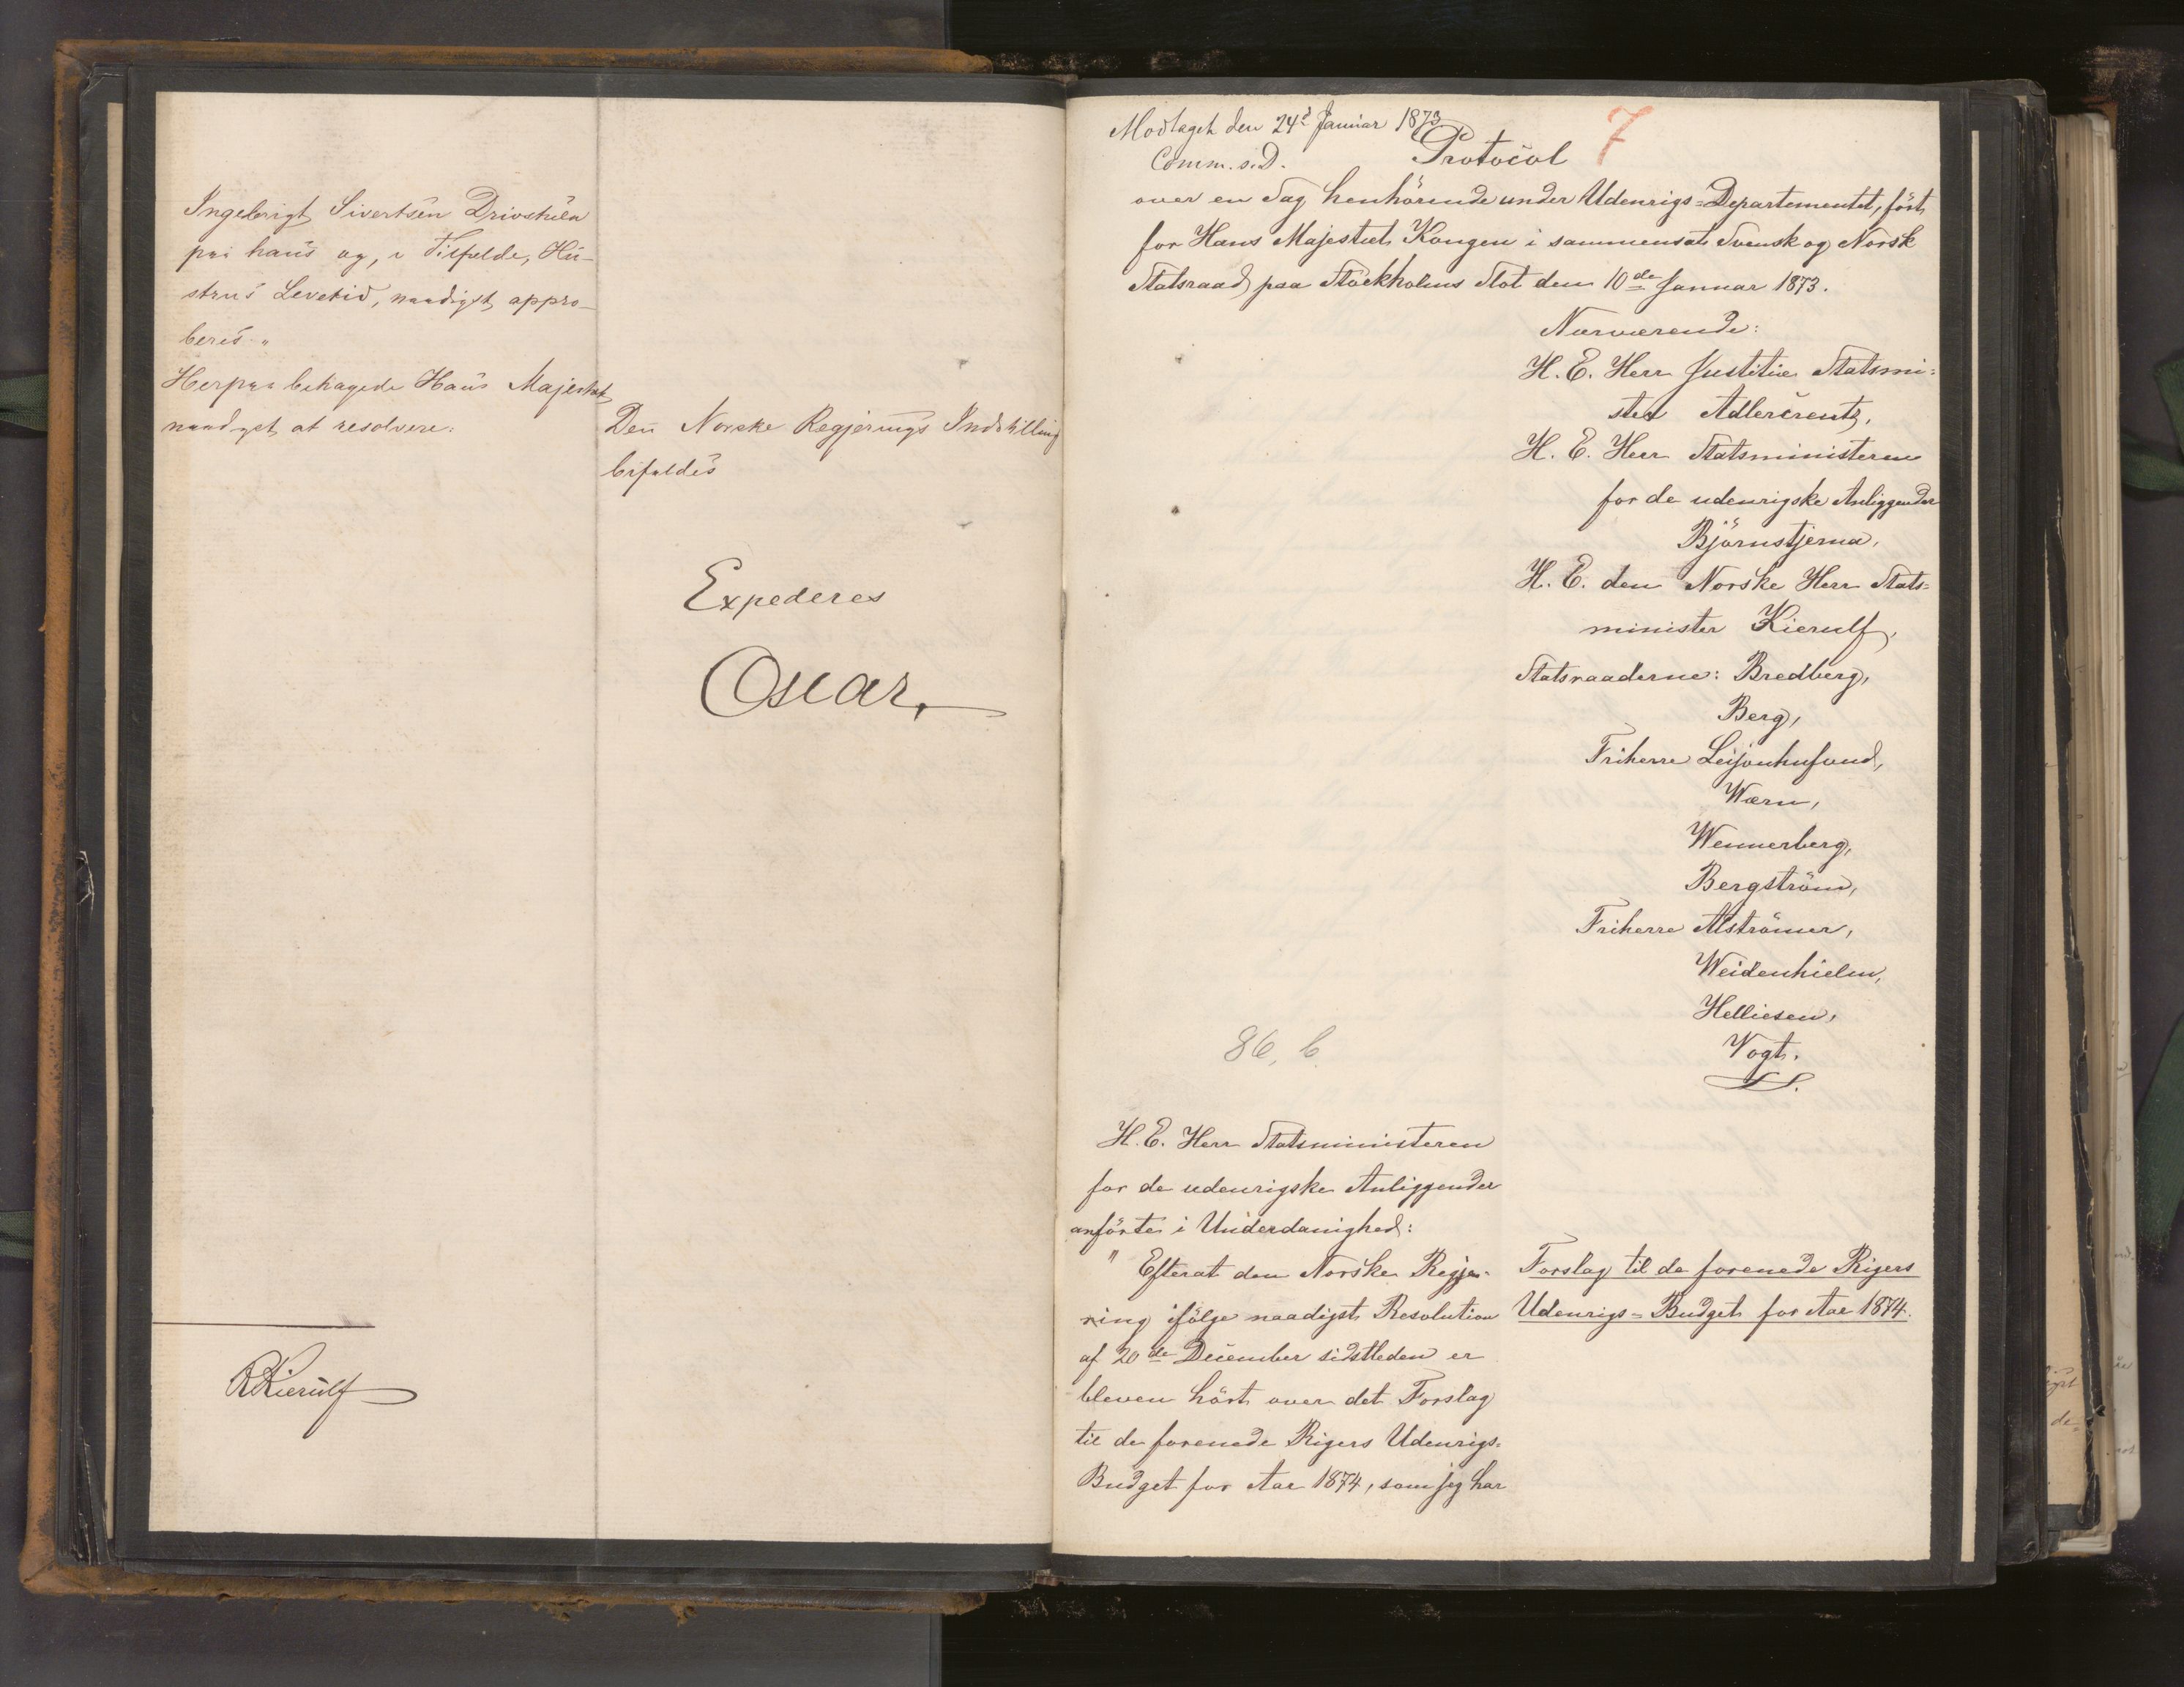 Ingebrigt Sivertsen Drivstuen
paa hans og, i Tilfelde, Hu-
strus Levetid, naadigst appro-
beres."
Herpaa behagede Hans Majestæt
naadigst at resolvere:
Den Norske Regjerings Indstilling
bifaldes
Expederes
Oscar.
RKierulf
Modtaget den 24d Januar 1873
Comm. s. D.
7
Protocol
over en Sag henhörende under Udenrigs=Departementet, fört
for Hans Majestæt Kongen i sammensat Svensk og Norsk
Statsraad paa Stockholms Slot den 10de Januar 1873.
Nærværende:
H. E. Herr Justitiæ Statsmi=
ster Adlercreutz,
H. E. Herr Statsministeren
for de udenrigske Anliggender
Björnstjerna,
H. E. den Norske Herr Stats=
minister Kierulf,
Statsraaderne: Bredberg,
Berg,
Friherre Leijonhufvud,
Wærn,
Wennerberg,
Bergström,
Friherre Alströmer,
Weidenhielm,
Helliesen,
Vogt.
86, b
H. E. Herr Statsministeren
for de udenrigske Anliggender
anförte i Underdanighed:
" Efterat den Norske Regje-
ring ifölge naadigst Resolution
af 20de December sidstleden er
bleven hört over det Forslag
til de forenede Rigers Udenrigs=
Budget for Aar 1874, som jeg har
Forslag til de forenede Rigers
Udenrigs=Budget for Aar 1874.